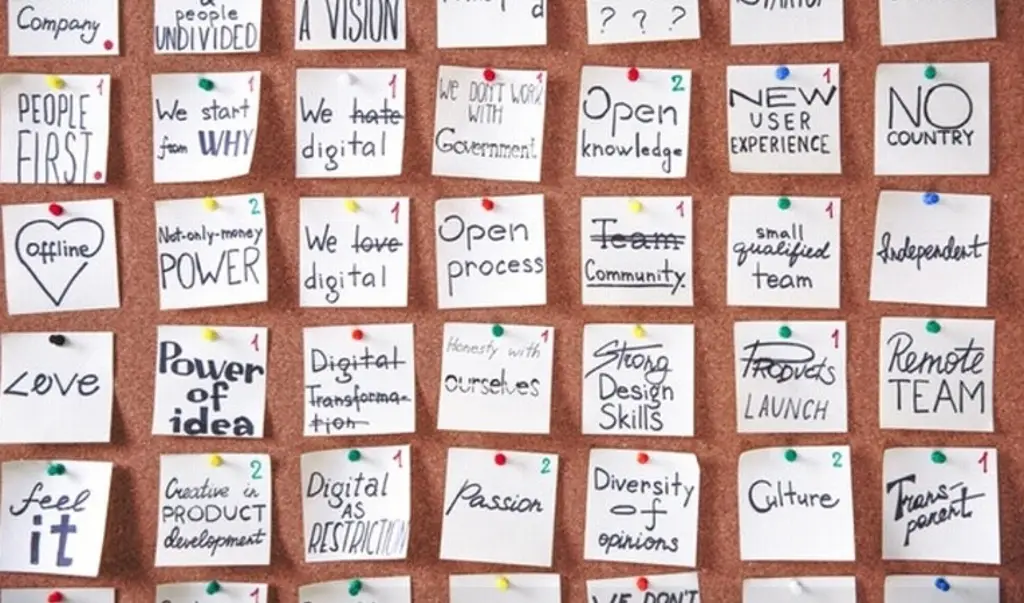 Company.
people
UNDIVIDED
A VISION
d
? ? ?
1
PEOPLE
FIRST.
1
We start
from WHY
1
We hate
digital
1
WE DON'T WORK
WITH
Government
2
Open
knowledge
1
NEW
USER
EXPERIENCE
NO
COUNTRY
offline
2
Not-only-money
POWER
1
We love
digital
Open
process
1
Team
Community
1
small
qualified
team
Independent
Love
1
Power
of
idea
Digital
Transforma-
tion
1
Honesty with
ourselves
Strong
Design
Skills
1
Products
LAUNCH
Remote
TEAM
feel
it
2
Creative in
PRODUCT
development
1
Digital
AS
RESTRICTION
2
Passion
Diversity
of
opinions
2
Culture
1
Trans-
parent
1
1
WE DON'T